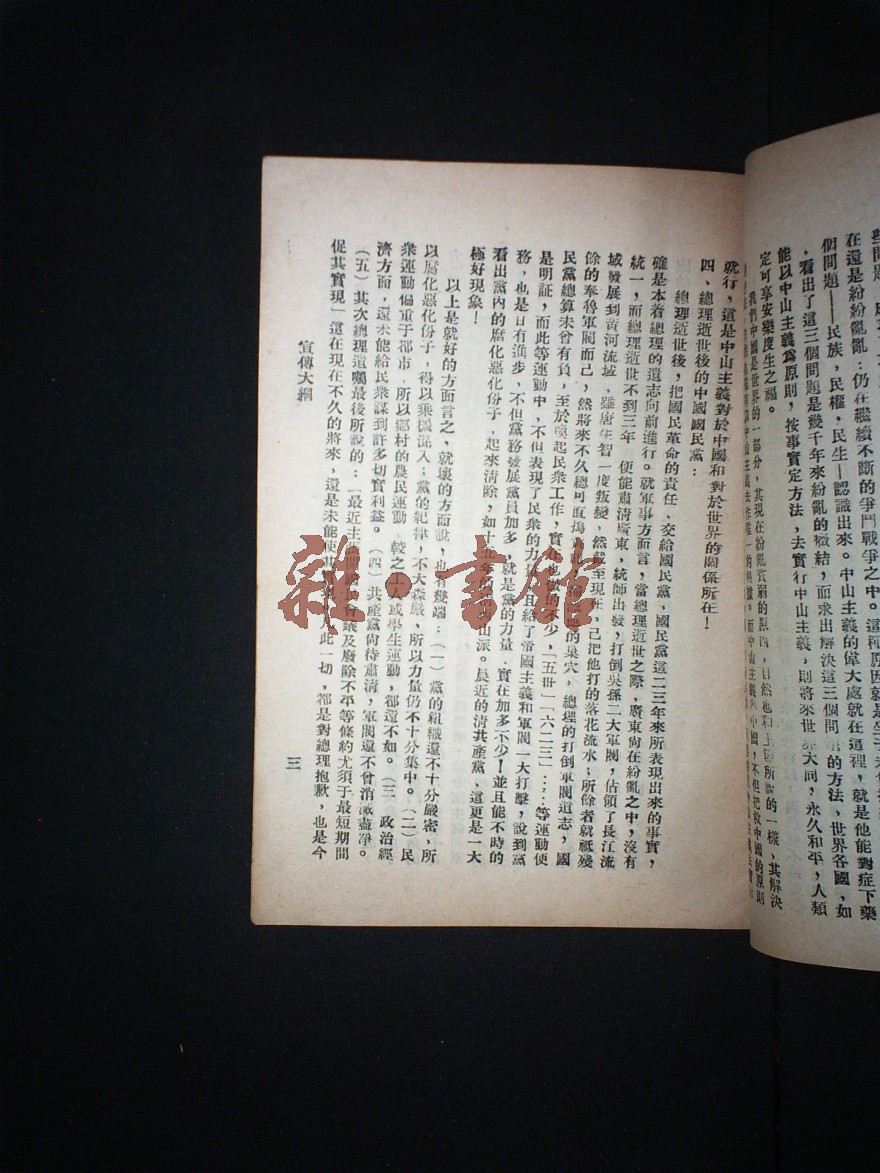 些問題，
在還是紛紛亂亂：仍在繼續不斷的爭鬥戰爭之中。這種原因就是
個問題——民族，民權，民生——認識出來。中山主義的偉大處就在這裡，就是他能對症下藥
，看出了這三個問題是幾千年來紛亂的癥結，而求出解決這三個問題的方法，世界各國，如
能以中山主義爲原則，按事實定方法，去實行中山主義，則將來世界大同，永久和平，人類
定可享安樂度生之福。
我們中國是世界的一部分，其現在紛亂貧弱的原因，自然也和上項所說的一樣，其解決
就行，這是中山主義對於中國和對於世界的關係所在！
四、總理逝世後的中國國民黨：
總理逝世後，把國民革命的責任、交給國民黨，國民黨這二三年來所表現出來的事實，
確是本着總理的遺志向前進行。就軍事方面言，當總理逝世之際，廣東尙在紛亂之中，沒有
統一，而總理逝世不到三年　便能肅淸廣東，統師出發，打倒吳孫二大軍閥，佔領了長江流
域發展到黃河流域，雖唐生智一度叛變，然截至現在，己把他打的落花流水；所餘者就祗殘
餘的奉魯軍閥而己，然將來不久總可直搗 的巢穴，總理的打倒軍閥遺志，國
民黨總算未曾有負，至於喚起民衆工作，實在也做的不少，「五卅」「六二三」：⋯等運動便
是明証，而此等運動中、不但表現了民衆的力 且給了帝國主義和軍閥一大打擊，說到黨
務，也是日有進步，不但黨務發展黨員加多，就是黨的力量、實在加多不少！並且能不時的
看出黨內的腐化惡化份子，起來清除，如十五年的 山派。最近的淸共產黨，這更是一大
極好現象！
以上是就好的方面言之，就壞的方面說，也有幾端：（一）黨的組織還不十分嚴密，所
以腐化惡化份子，得以乘機混入；黨的紀律，不大森嚴，所以力量仍不十分集中。（二）民
衆運動偏重于都市　所以鄉村的農民運動　較之工人或學生運動，都還不如。（三　政治經
濟方面，還未能給民衆謀到許多切實利益。（四）共產黨尙待肅淸，軍閥還不曾消滅盡凈。
（五）其次總理遺囑最後所說的：「最近主張開 會議及廢除不平等條約尤須于最短期間
促其實現」這在現在不久的將來，還是未能使其 此一切，都是對總理抱歉，也是今
宣傳大綱
三
雜·書館